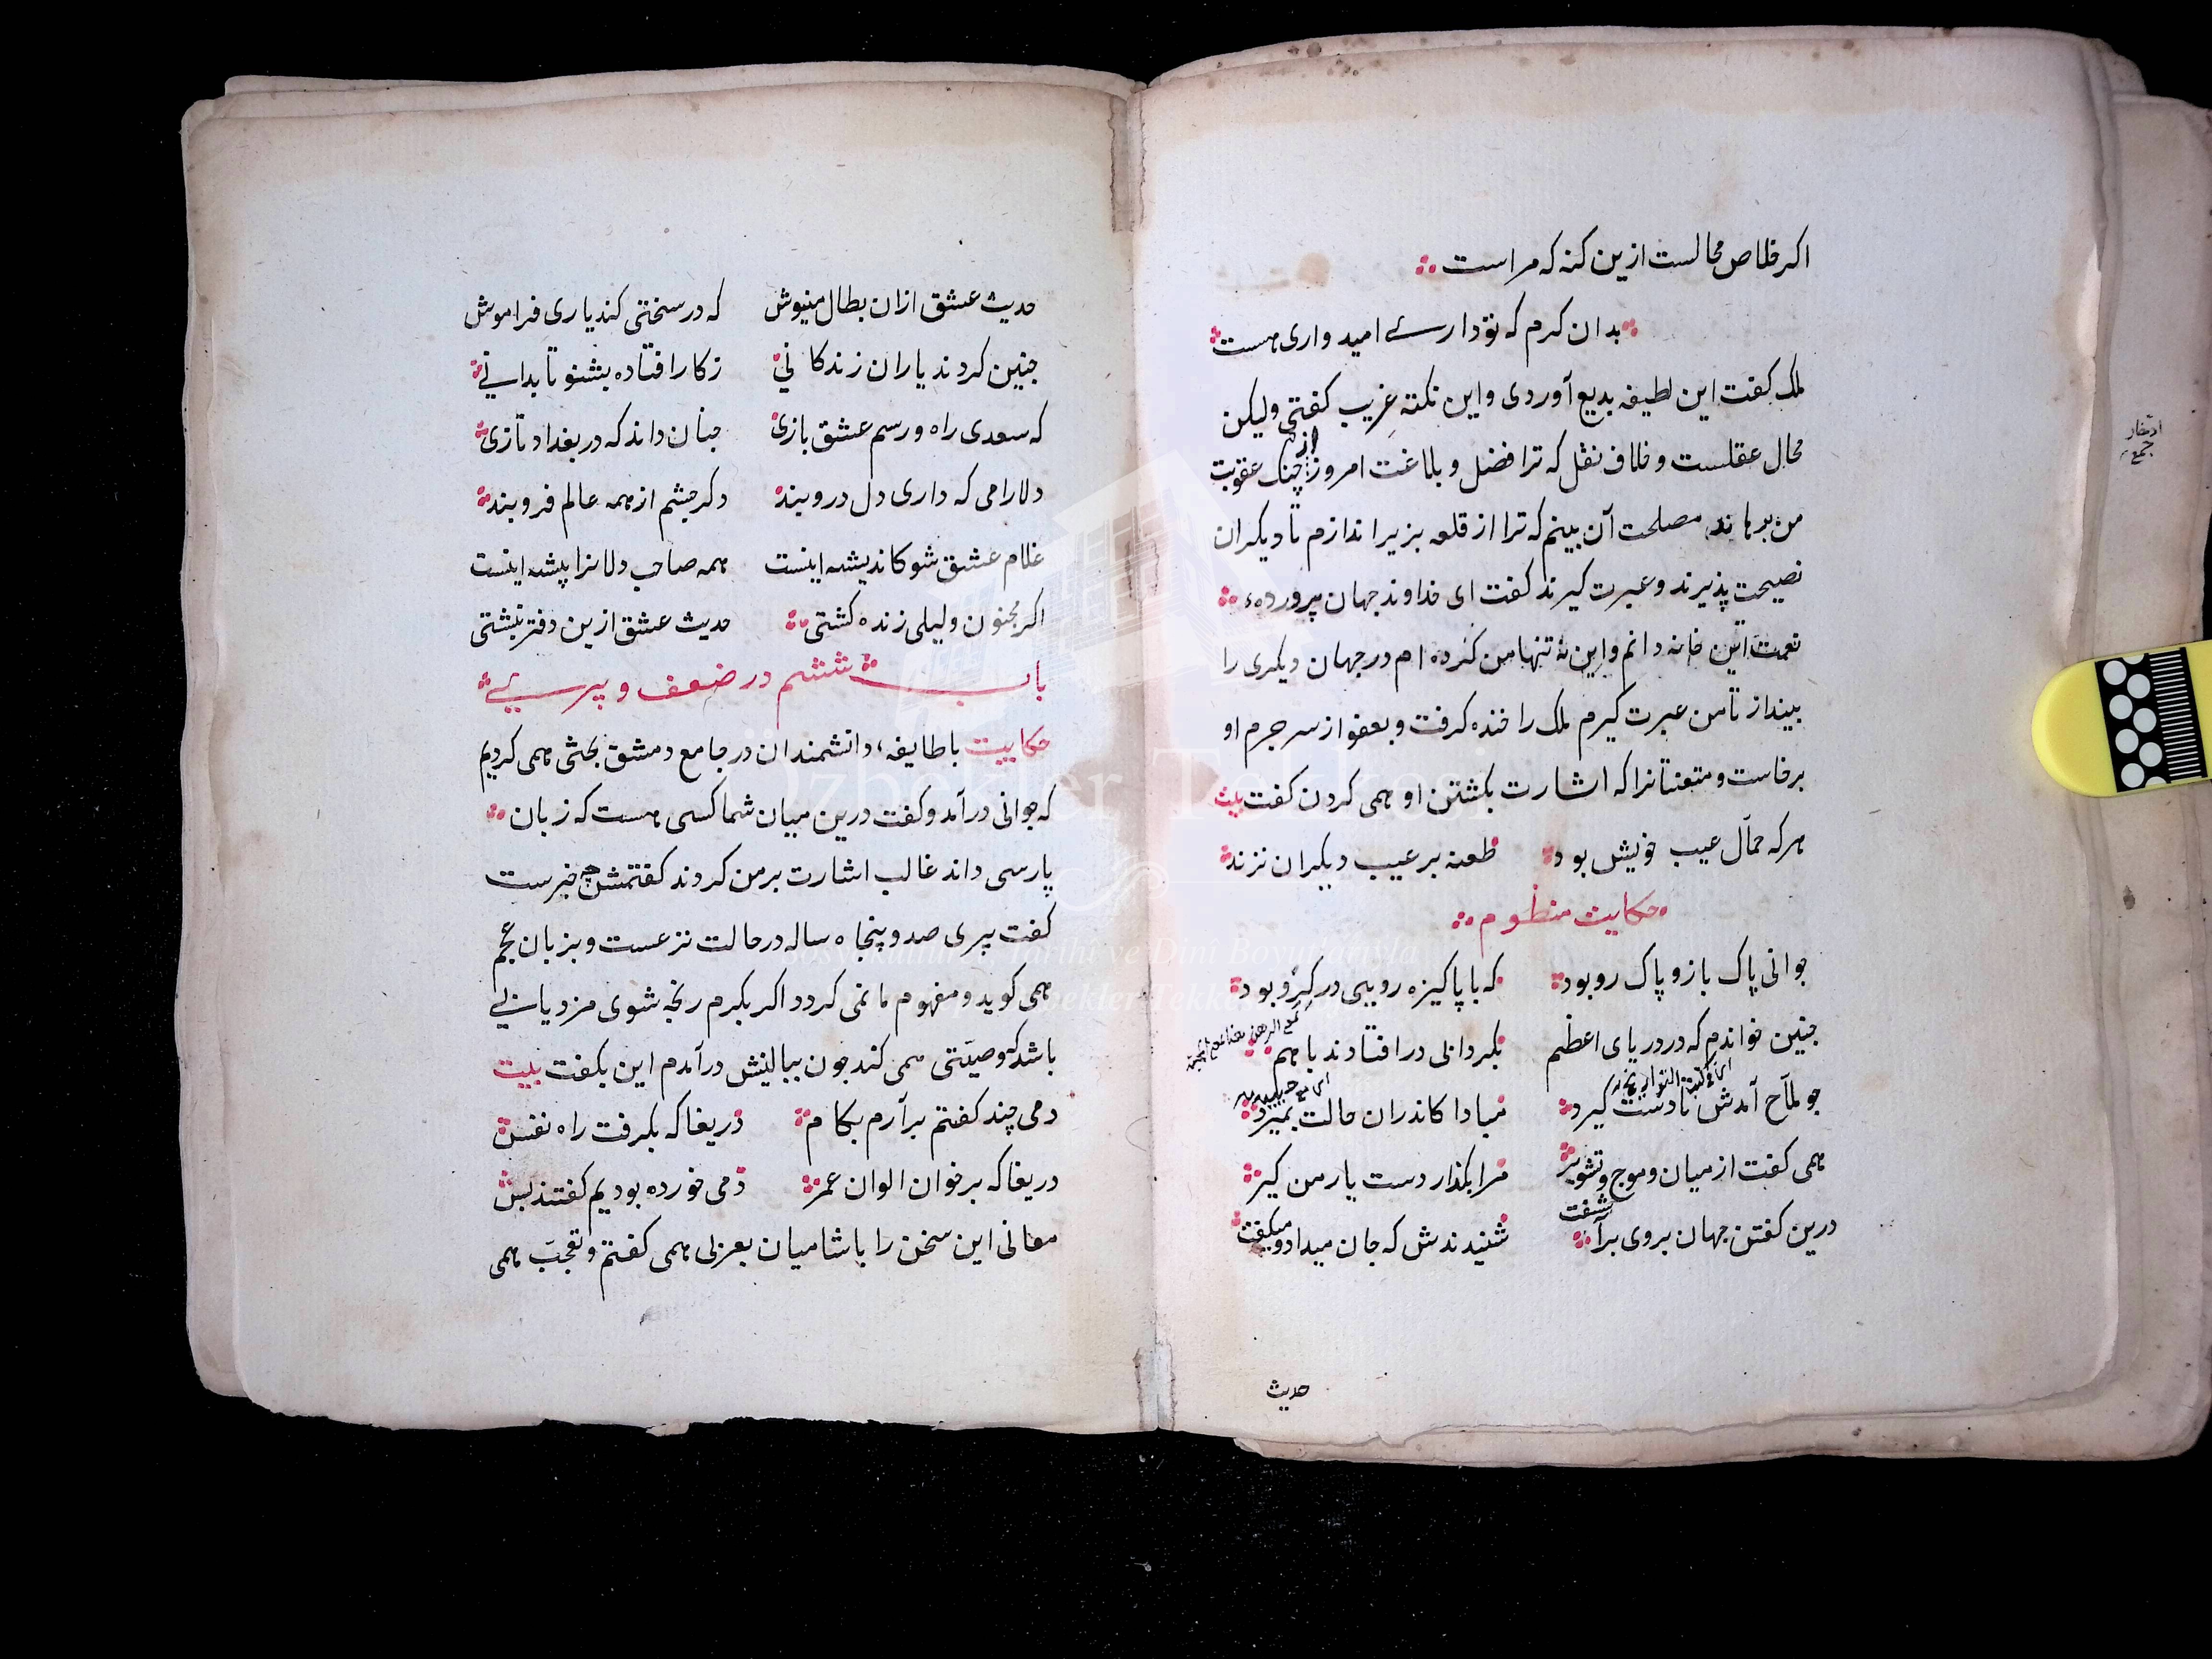 اکر خلاص محالست ازین کنه که مراست
بدان کرم که تو داری امیدواری هست
ملک کفت این لطیفه بدیع آوردی واین نکته غریب کفتی ولیکن
محال عقلست وخلاف نقل که ترا فضل وبلاغت امروز از چنک عقوبت
من برهاند مصلحت آن بینم که ترا از قلعه بزیر اندازم تا دیکران
نصیحت پذیرند وعبرت کیرند کفت ای خداوند جهان پرورده‌ء
نعمت این خانه دانم واین نه تنها من کنرده ام در جهان دیکری را
بینداز تا من عبرت کیرم ملک را خنده کرفت وبعفو از سر جرم او
برخاست ومتعنتانرا که اشارت بکشتن او همی کردن کفت بیت
هرکه حمال عیب خویش بود طعنه بر عیب دیکران نزند
حکایت منظوم
جوانی پاک باز وپاک رو بود که با پاکیزه رویی در کرو بود
جنین خواندم که در دریای اعظم بکردابی در افتادند با هم
جو ملاح آمدش تا دست کیرد مبادا کاندران حالت بمیرد
همی کفت از میان وموج وتشویر مرا بکذار دست یار من کیر
درین کفتن جهان بروی برآشفت شنیدندش که جان میداد ومیکفت
حدیث
حدیث عشق ازان بطال منیوش که در سختی کند یاری فراموش
جنین کردند یاران زندکانی زکار افتاده بشنو تا بدانی
که سعدی راه ورسم عشق بازی جنان داند که در بغداد تازی
دلارامی که داری دل درو بند دکر جشم از همه عالم فرو بند
غلام عشق شو کاندیشه اینست همه صاحب دلانرا پیشه اینست
اکر مجنون ولیلی زنده کشتی حدیث عشق ازین دفتر نبشتی
باب ششم در ضعف وپیری
حکایت باطایفهء دانشمندان در جامع دمشق بحثی همی کردیم
که جوانی درآمد وکفت درین میان شما کسی هست که زبان
پارسی داند غالب اشارت برمن کردند کفتمش چه خبرست
کفت پیری صد وپنجاه ساله در حالت نزعست وبزبان عجم
همی کوید ومفهوم ما نمی کردد اکر بکرم رنجه شوی مزد یابی
باشد که وصیتی همی کند جون ببالینش درآمدم این بکفت بیت
دمی چند کفتم برآرم بکام دریغا که بکرفت راه نفس
دریغا که برخوان الوان عمر دمی خورده بودیم کفتند بس
معانی این سخن را باشامیان بعربی همی کفتم وتعجب همی